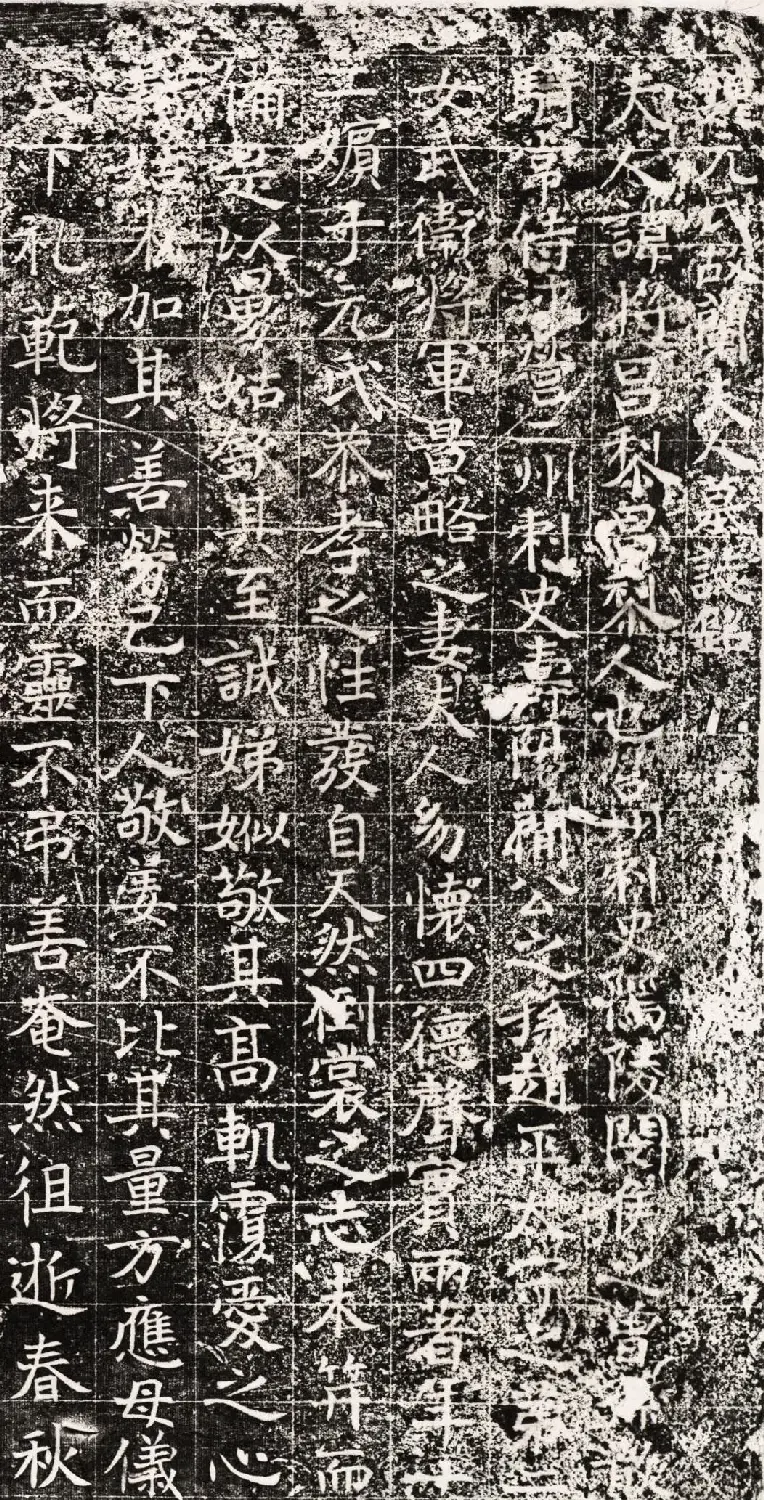 魏元公故蘭夫人墓誌銘
夫人諱將昌黎昌黎人也刺史陵閔侯之曾孫散
騎常侍并營二州刺史壽陽簡公之孫趙平太守之第二
女武衛將軍景略之妻夫人幼懷四德聲實兩著年十
二嬪于元氏恭孝之性發自天然倒裳之志未笄而
備是以舅姑其至誠娣姒敬其髙軌覆愛之心
加其善勞己下人敬妾不比其量方應母儀
天下礼範將来而靈不弔善奄然徂逝春秋